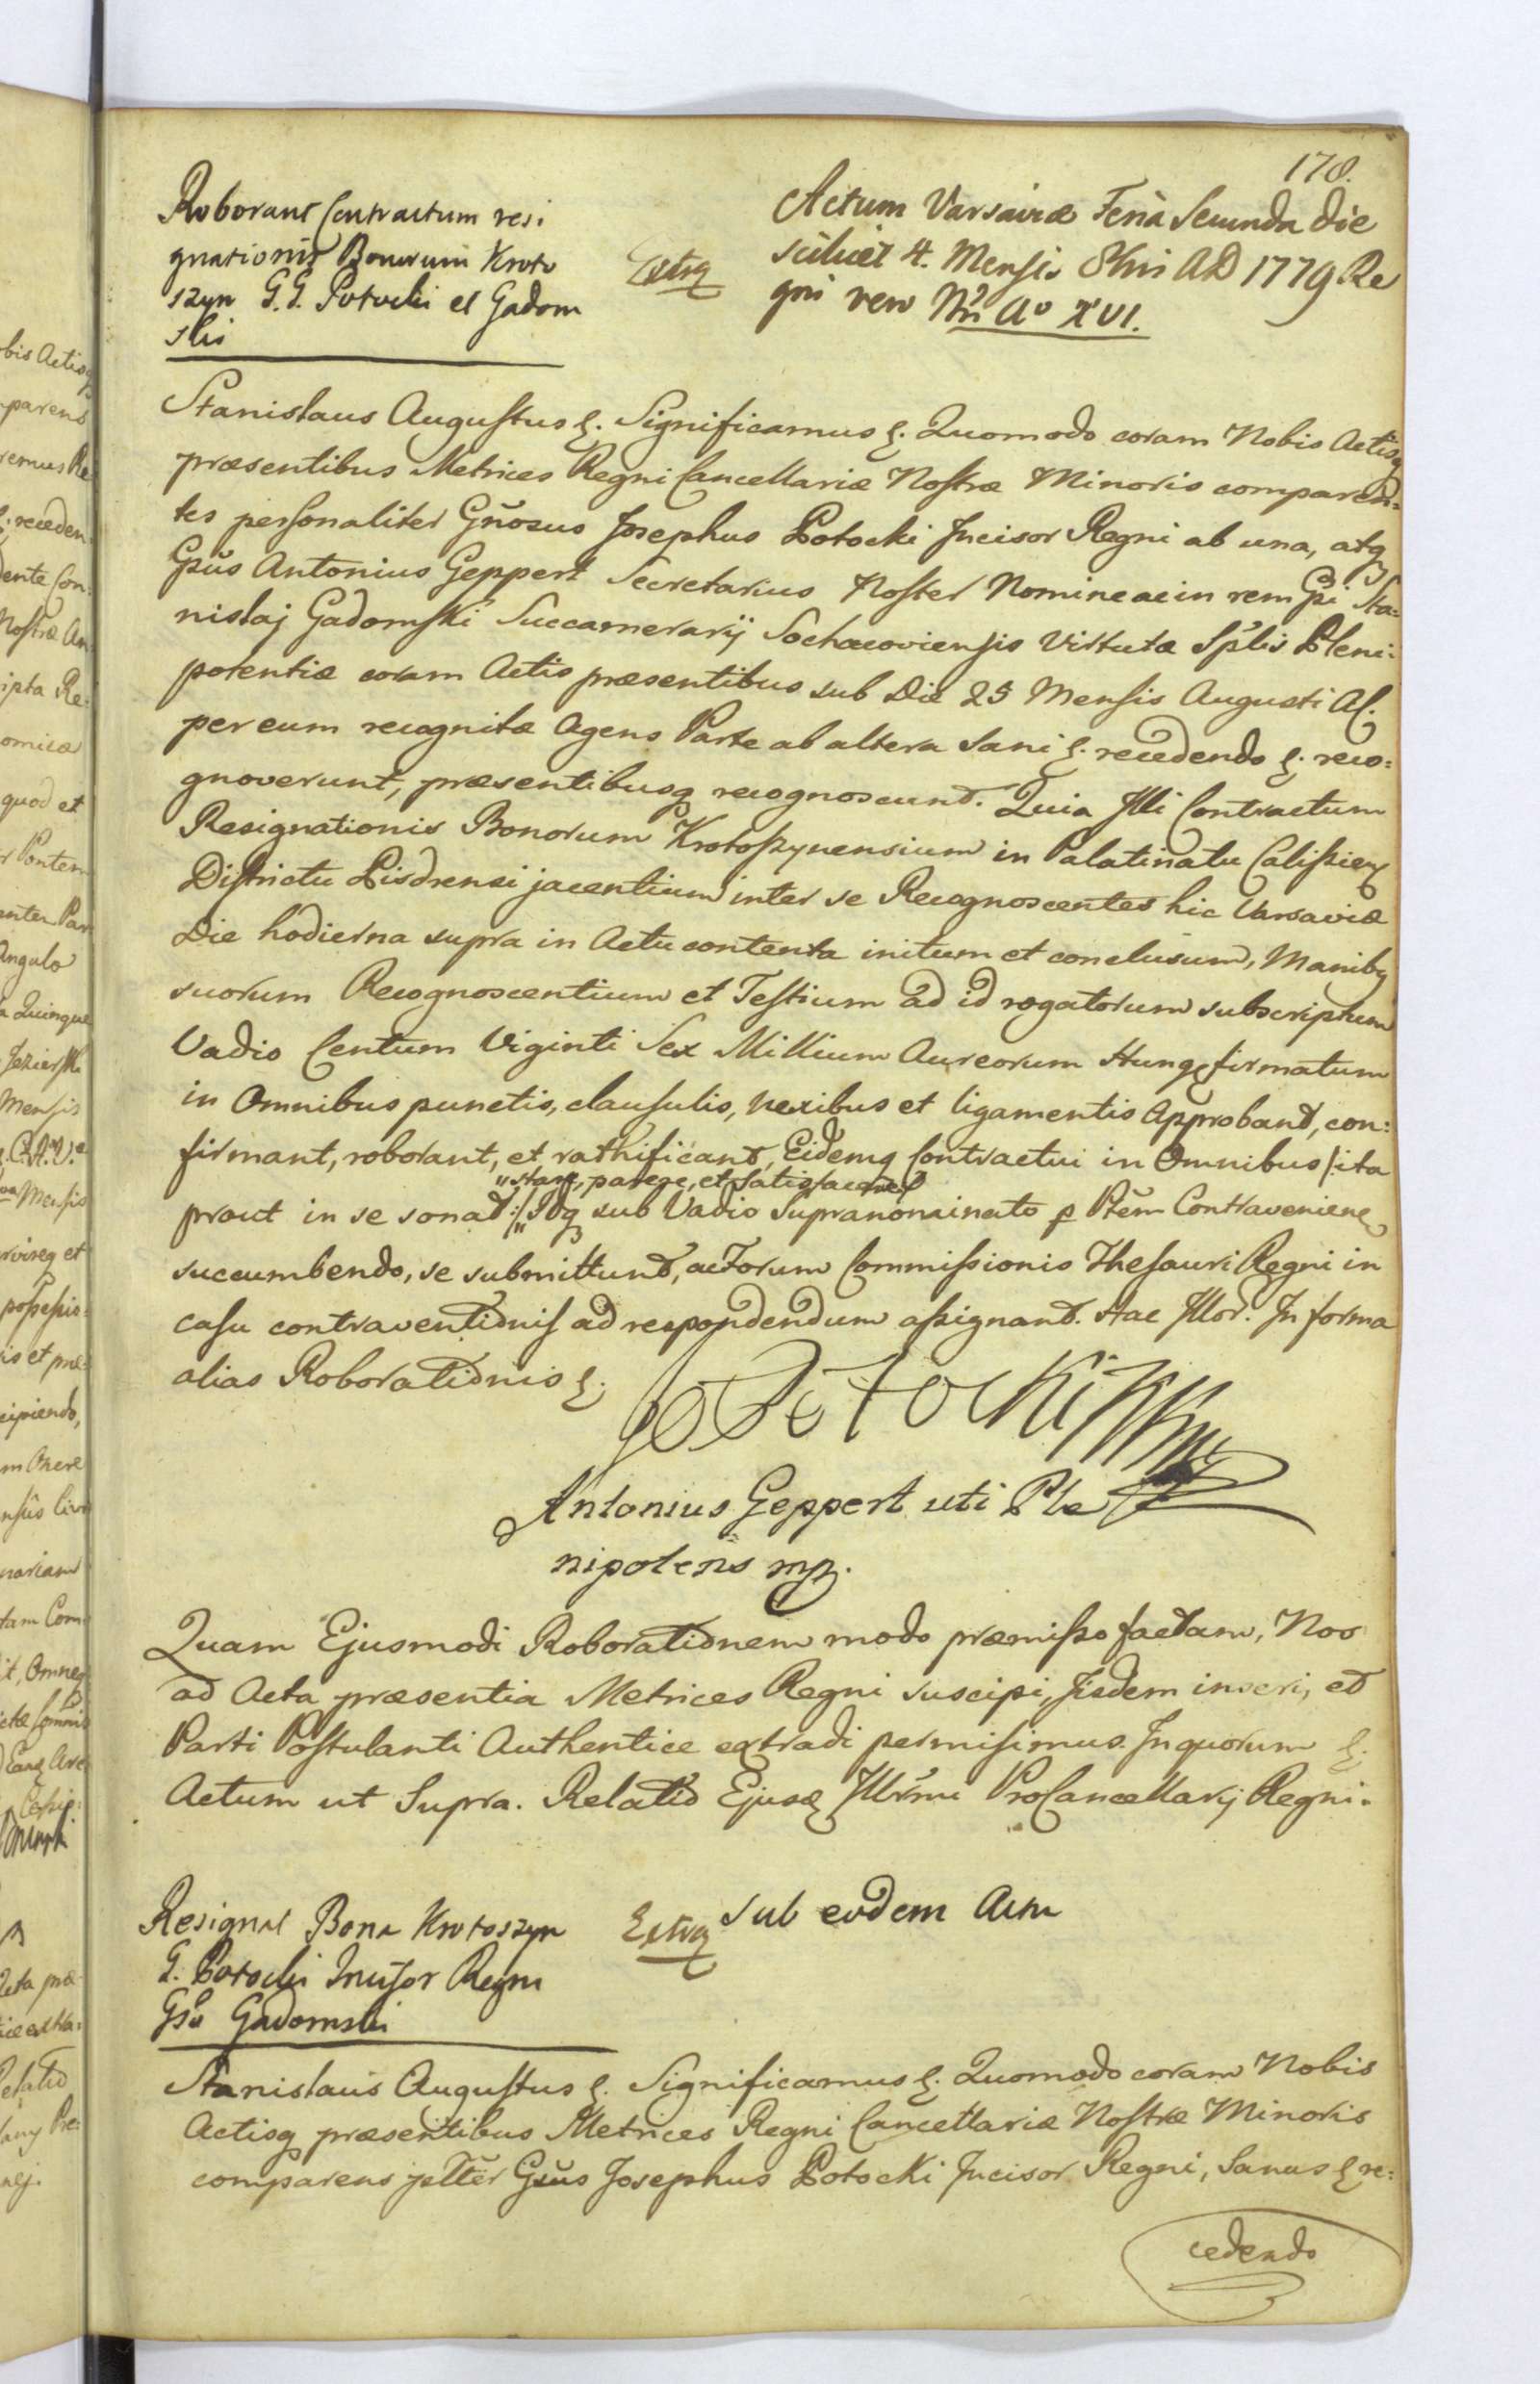 178.
Roborant Contractum resi
gnationis Bonorum Kroto
szyn G.G. Potocki et Gadom
ski
Extrq
Actum Varsaviæ Feria Secunda die
scilicet 4. Mensis 8bris AD 1779 Re
gni vero Nri Ao XVI.
Stanislaus Augustus &. Significamus &. Quomodo coram Nobis Actisq
præsentibus Metrices Regni Cancellariæ Nostræ Minoris comparen=
tes personaliter Gñosus Josephus Potocki Incisor Regni ab una, atq
Gñus Antonius Geppert Secretarius Noster Nomine ac in rem Gsi Sta=
nislaj Gadomski Succamerarij Sochacoviensis Virtute Splis Pleni:
potentiæ coram Actis præsentibus sub Die 25 Mensis Augusti AC.
per eum recognitæ Agens Parte ab altera Sani &. recedendo &. reco=
gnoverunt, præsentibusq recognoscunt. Quia Illi Contractum
Resignationis Bonorum Krotoszynensium in Palatinatu Calissien
Districtu Pisdrensi jacentium inter se Recognoscentes hic Varsaviæ
Die hodierna supra in Actu contenta initum et conclusum, Manibq
suorum Recognoscentium et Testium ad id rogatorum subscriptum
Vadio Centum Viginti Sex Millium Aureorum Hung firmatum
in Omnibus punctis, clausulis, nexibus et ligamentis Approbant, con:
firmant, roborant, et rathificant, Eidemq Contractui in Omnibus /:ita
"stare, parere, et satisfacere
prout in se sonat:/ " seq sub Vadio Supranominato p Ptem Contravenien
succumbendo, se submittunt, ac Forum Commissionis Thesauri Regni in
casu contraventionis ad respondendum assignant. Hac Illor. In forma
alias Roborationis &.
Jo Potocki KK mp
Antonius Geppert uti Ple
nipotens mp.
Quam Ejusmodi Roborationem modo præmisso factam, Nos
ad Acta præsentia Metrices Regni suscipi, Jisdem inseri, et
Parti Postulanti Authentice extradi permisimus. In quorum &.
Actum ut Supra. Relatio Ejusd Illrmi ProCancellarij Regni.
Resignat Bona Krotoszyn
G. Potocki Incisor Regni
Gso Gadomski
Extrq
Sub eodem Actu
Stanislaus Augustus &. Significamus &. Quomodo coram Nobis
Actisq præsentibus Metrices Regni Cancellariæ Nostræ Minoris
comparens psltr Gsus Josephus Potocki Incisor Regni, Sanus & re:
cedendo